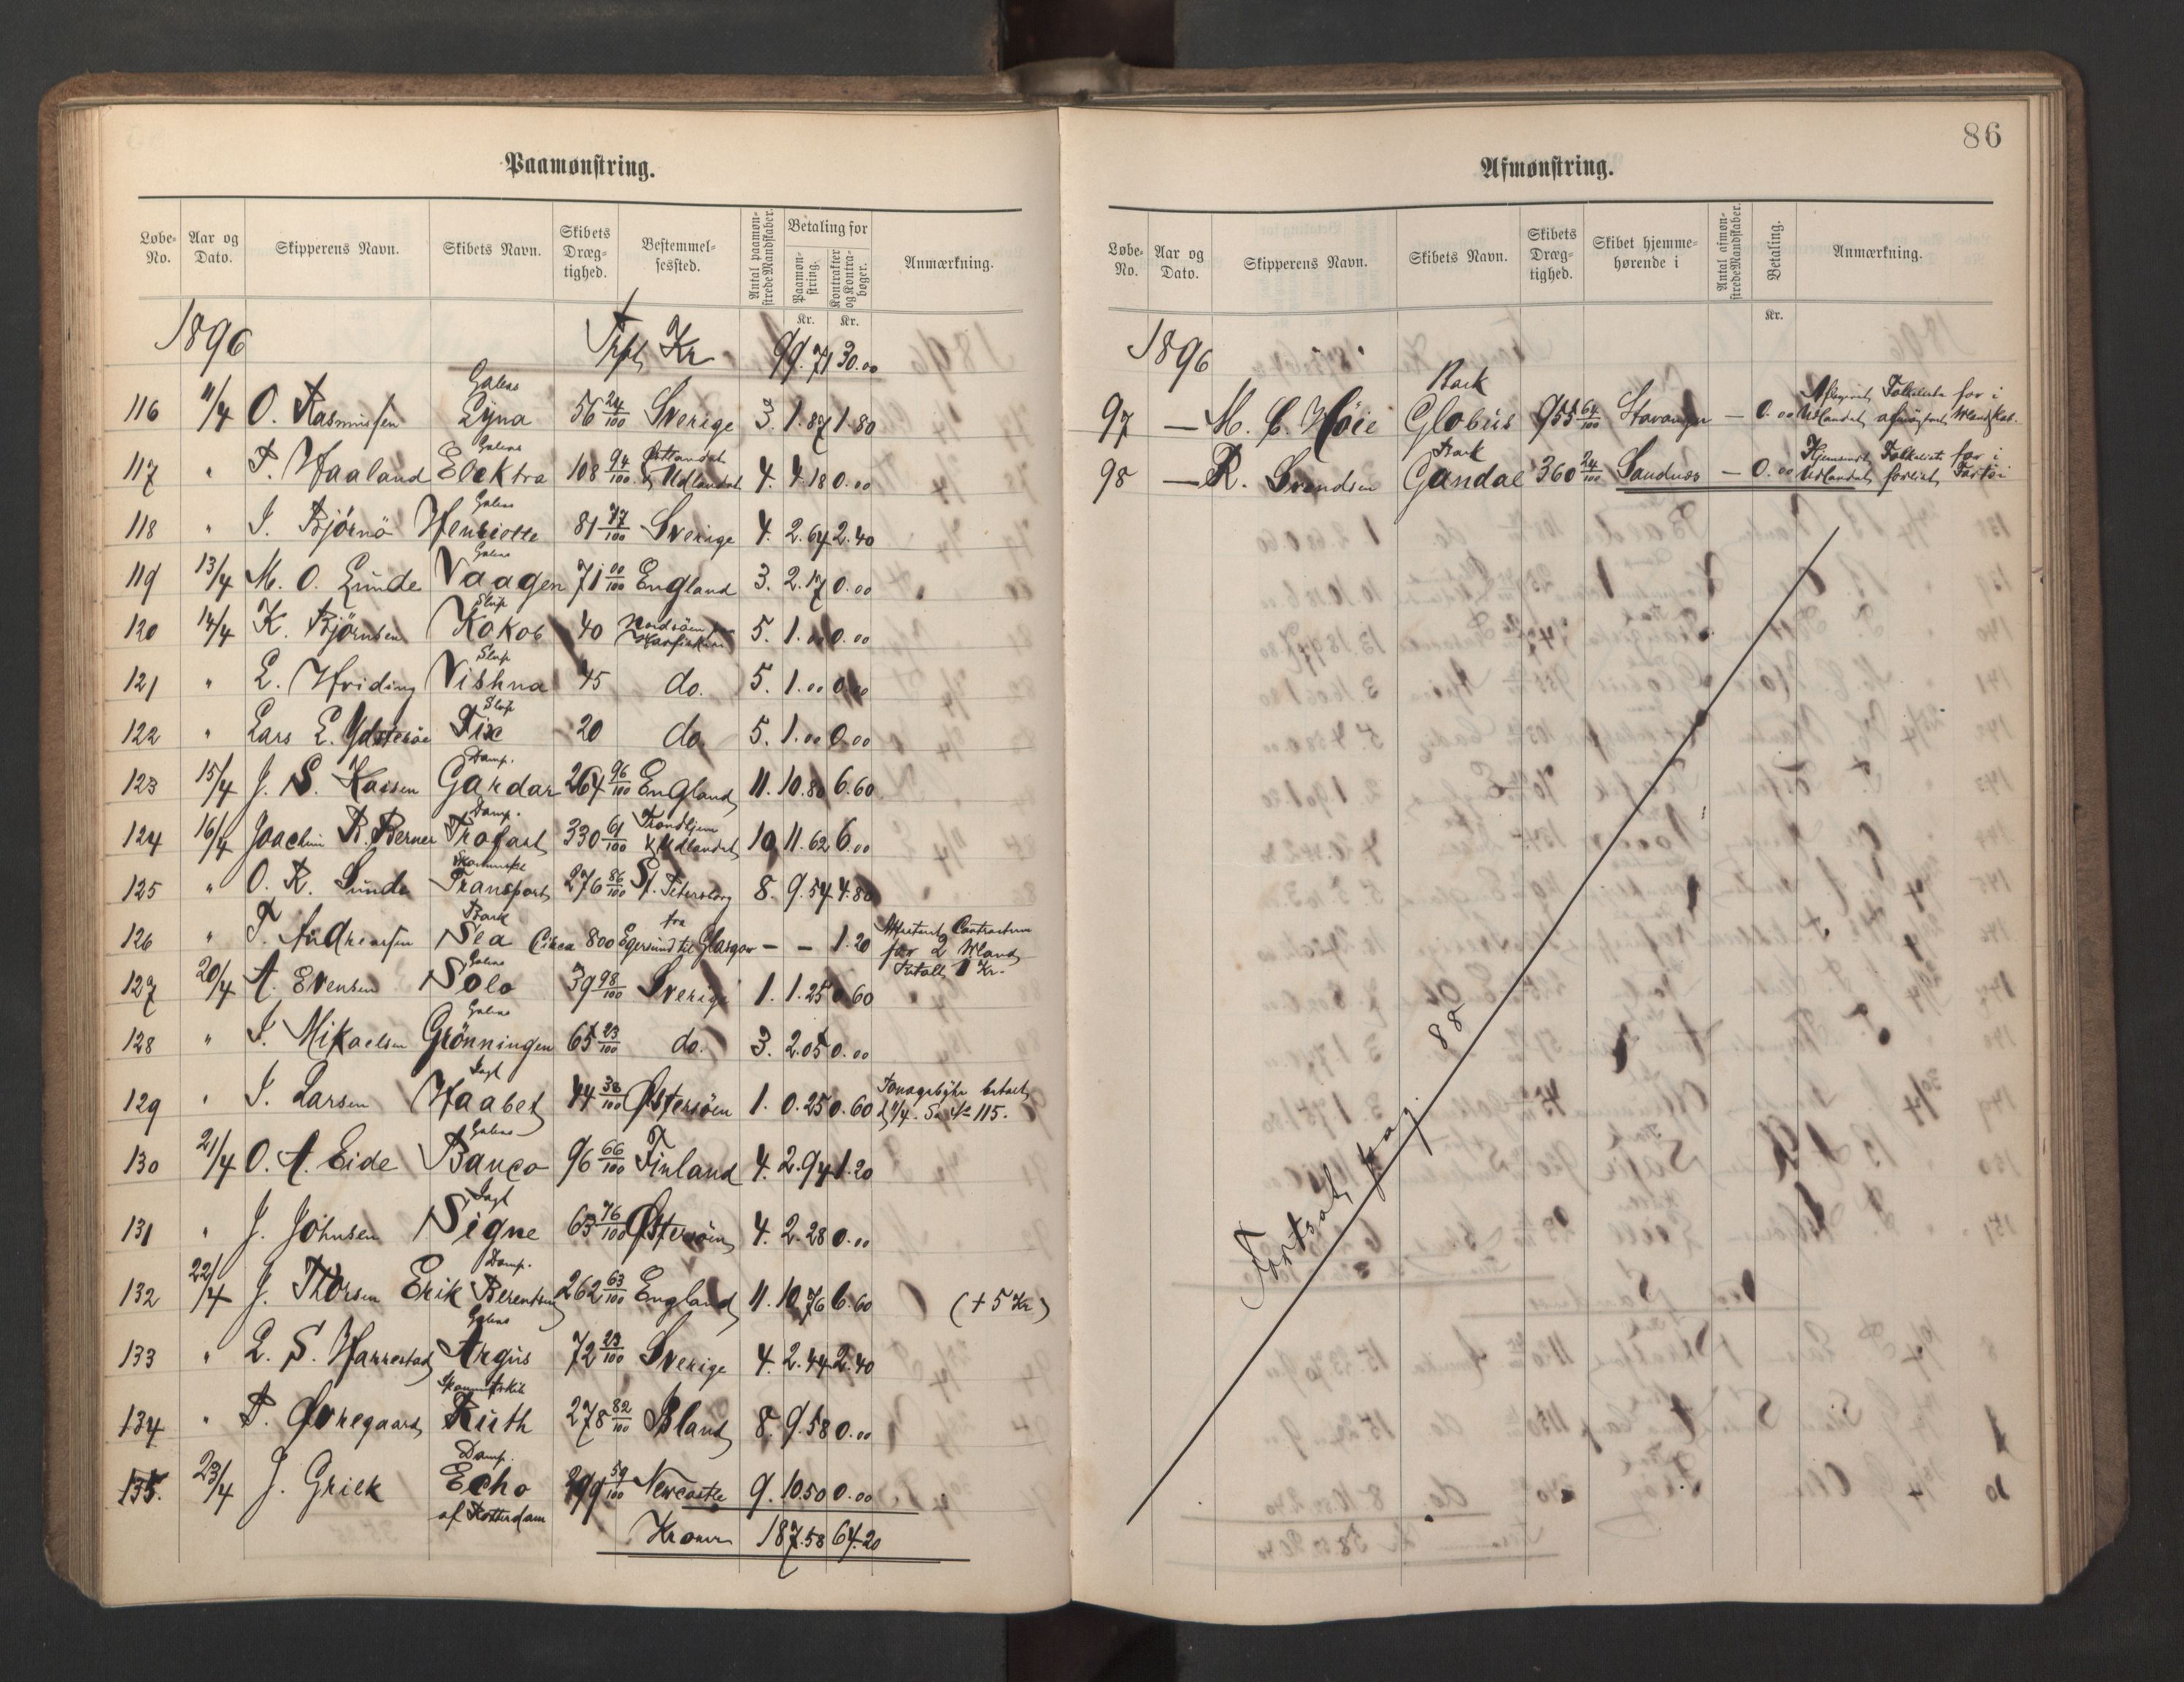 Paamønstring.
Løbe-No. Aar og Dato. Skipperens Navn. Skibets Navn. Skibets Dræg-tighed. Bestemmel-sessted. Antal paamøn-strede Mandskaber. Betaling for Paamøn-string. Kontrakter og Kontra-bøger. Anmærkning.
Kr. Kr.
1896 Trpt Kr 99.71 30.00
Galeas
116 11/4 O. Rasmussen Eyna 56 24/100 Sverige 3. 1.87 1.80
Galeas Østlandet
117 " T. Haaland Elektra 108 94/100 & Udlandet 4. 4.18 0.00
Galeas
118 " I. Bjørnø Henriette 81 77/100 Sverige 4. 2.64 2.40
Galeas
119 13/4 M. O. Lunde Vaagen 71 00/100 England 3. 2.17 0.00
Slup
120 14/4 K. Bjørnsen Kokob 40 Nordsöen 5. 1.00 0.00
Slup
121 " L. Hviding Vishna 45 do. 5. 1.00 0.00
Slup
122 " Lars L. Ydstesöe Fix 20 do. 5. 1.00 0.00
Damp.
123 15/4 J. S. Kaisen Gardar 264 96/100 England 11. 10.80 6.60
Damp. Trondhjem
124 16/4 Joachim R. Berner Trofast 330 61/100 & Udlandet 10 11.62 6.00
125 " O. R. Sunde Transport 276 86/100 St. Petersborg 8. 9.54 4.80
Bark fra
126 " T. Andreassen Sea Circa 800 Egersund til Glasgow - - 1.20 Contracten
for 2 Mand
Betalt 1 Kr.
Galeas
127 20/4 A. Evensen Solo 39 98/100 Sverige 1. 1.25 0.60
Galeas
128 " I. Mikaelsen Grönningen 65 23/100 do. 3. 2.05 0.00
Jagt
129 " I. Larsen Haabet 44 38/100 Østersöen 1. 0.25 0.60 Tonagebyhr betalt
Se No 115.
Galeas
130 21/4 O. A. Eide Banco 96 66/100 Finland 4. 2.94 1.20
Jagt
131 " J. Johnsen Signe 63 76/100 Østersöen 4. 2.28 0.00
Damp.
132 22/4 J. Thorsen Erik Berentsen 262 63/100 England 11. 10.76 6.60 (+ 5 Kr)
Galeas
133 " L. S. Harrestad Argus 72 23/100 Sverige 4. 2.44 2.40
134 " T. Øvregaard Ruth 278 82/100 Island 8. 9.58 0.00
Damp.
135. 23/4 J. Griek Echo 299 59/100 Newcastle 9. 10.50 0.00
af Rotterdam
Kroner 187.58 64.20
86
Afmønstring.
Løbe-No. Aar og Dato. Skipperens Navn. Skibets Navn. Skibets Dræg-tighed. Skibet hjemme-hørende i Antal afmøn-strede Mandskaber. Betaling. Anmærkning.
Kr.
1896
Bark Folkeliste for i
97 — M. C. Höie Globus 955 64/100 Stavanger — 0.00 Udlandet afmønstret Mandskab.
Bark Hjemsendt Folkeliste for i
98 — R. Svendsen Gandal 360 24/100 Sandnes — 0.00 Udlandet forlist Fartöi
Fortsat pag. 88